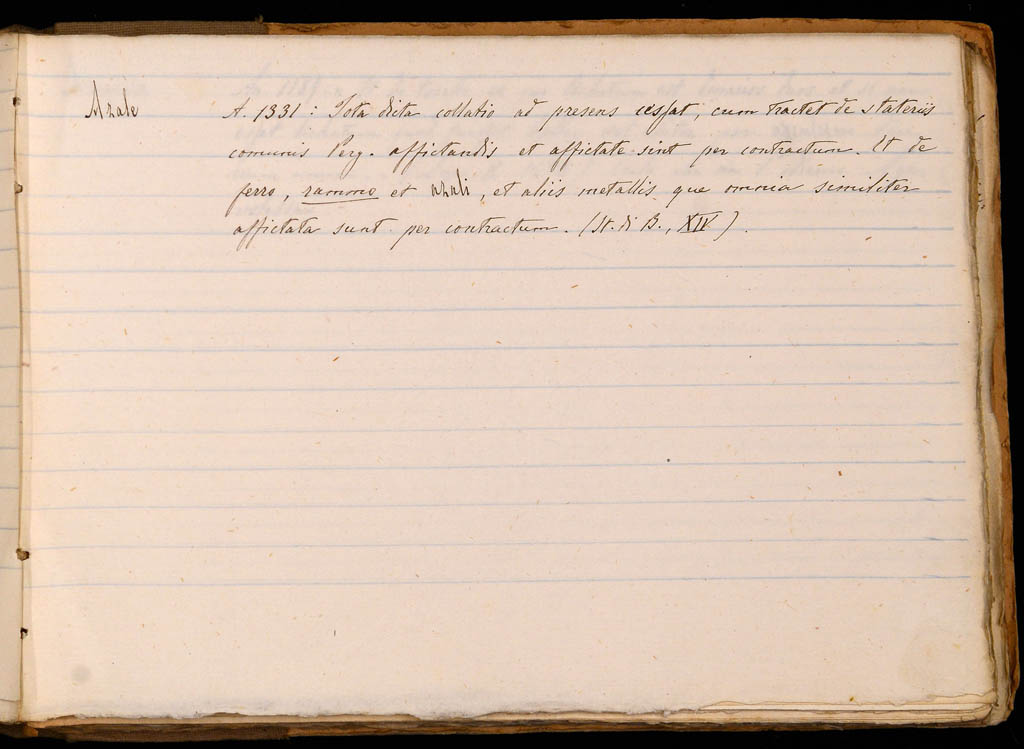 Azale
A. 1331 : Tota dicta collatio ad presens cessat, cum tractet de stateriis
comunis Perg. affictandis et affictate sint per contractum. It de
ferro, rammo et azali, et aliis metallis que omnia similiter
affictata sunt per contractum. (St. di B., XIV).